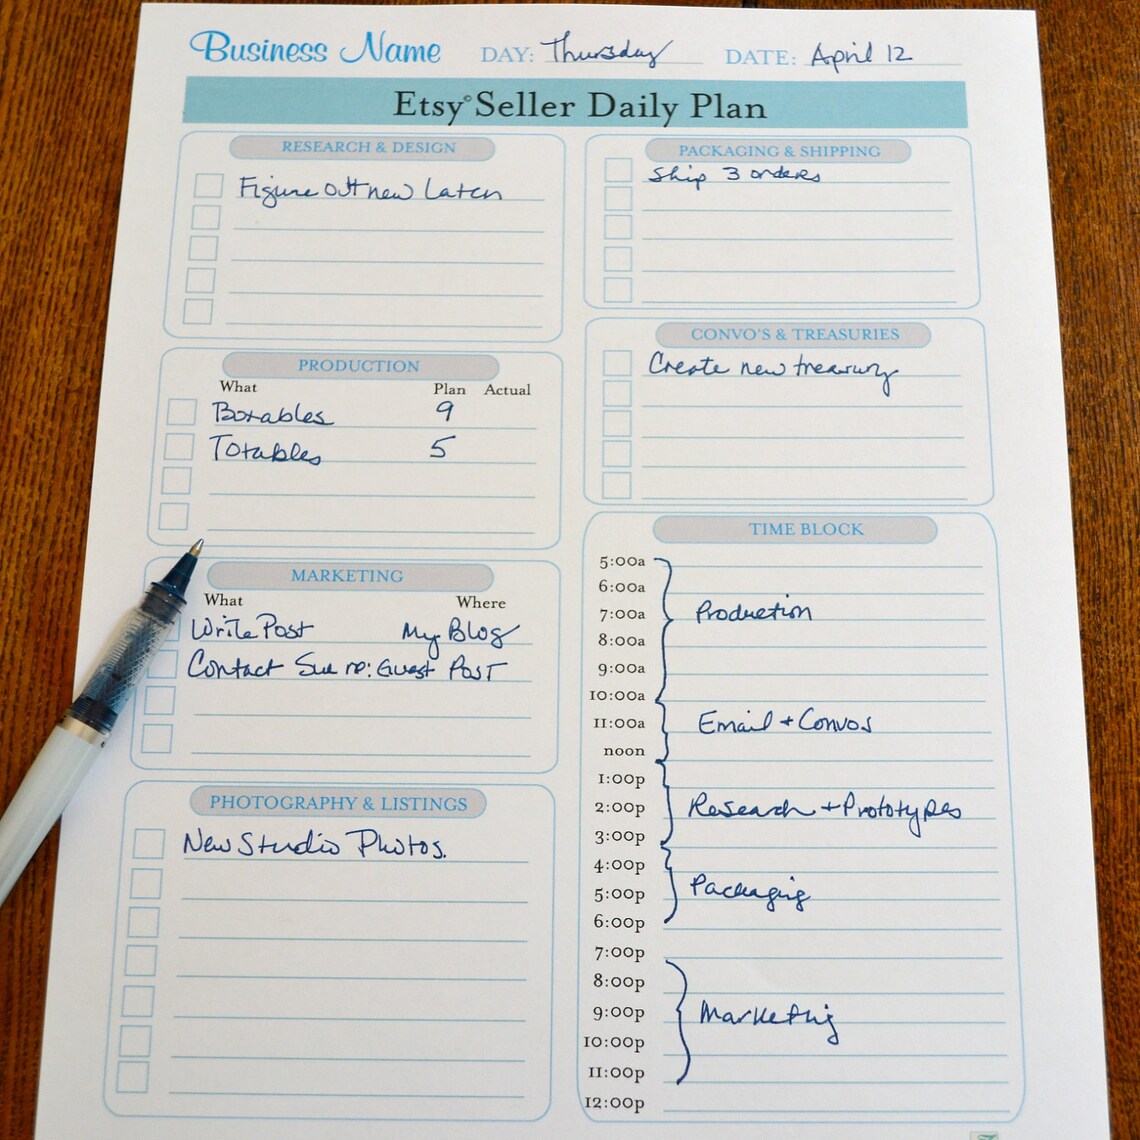 Business Name DAY: Thursday DATE: April 12
Etsy© Seller Daily Plan
RESEARCH & DESIGN
Figure out new Latch
PRODUCTION
What Plan Actual
Boxables 9
Totables 5
MARKETING
What Where
Write Post My Blog
Contact Sue re: Guest Post
PHOTOGRAPHY & LISTINGS
New Studio Photos.
PACKAGING & SHIPPING
Ship 3 orders
CONVO'S & TREASURIES
Create new treasury
TIME BLOCK
5:00a
6:00a
7:00a Production
8:00a
9:00a
10:00a
11:00a Email + Convos
noon
1:00p
2:00p Research + Prototypes
3:00p
4:00p
5:00p Packaging
6:00p
7:00p
8:00p
9:00p Marketing
10:00p
11:00p
12:00p